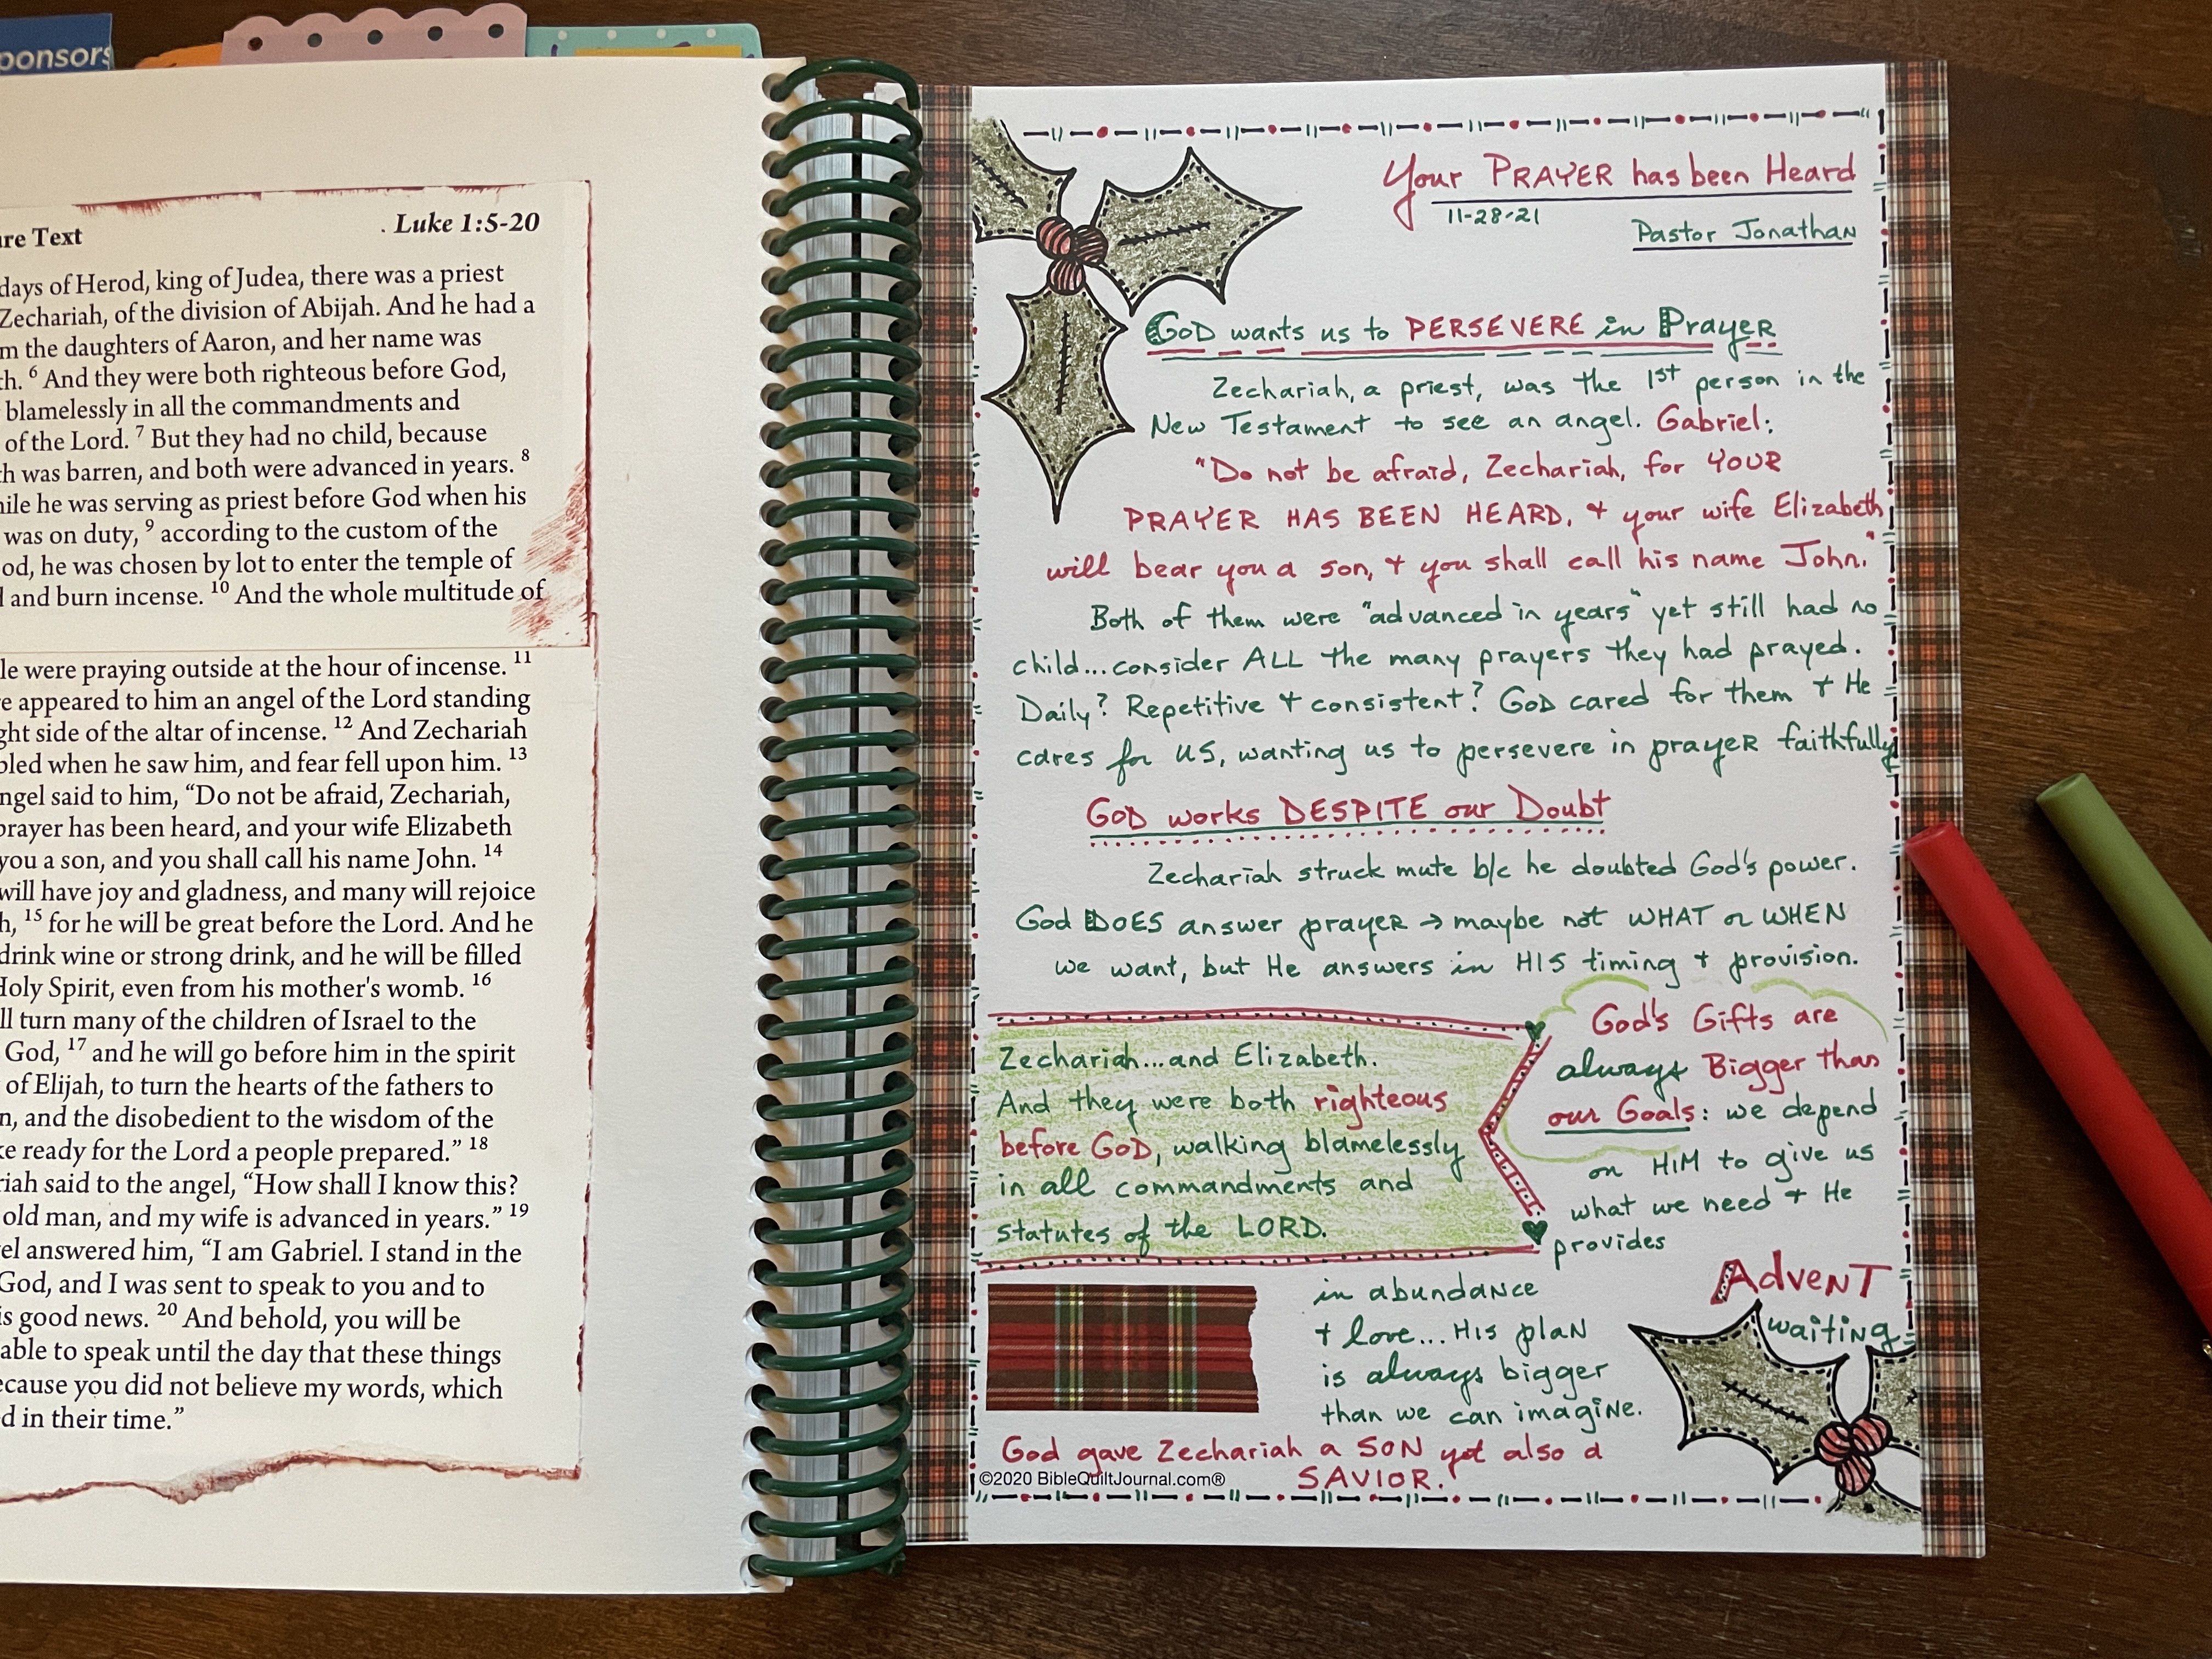 ponsors
re Text
. Luke 1:5-20
days of Herod, king of Judea, there was a priest
Zechariah, of the division of Abijah. And he had a
m the daughters of Aaron, and her name was
th. 6 And they were both righteous before God,
blamelessly in all the commandments and
of the Lord. 7 But they had no child, because
th was barren, and both were advanced in years. 8
hile he was serving as priest before God when his
was on duty, 9 according to the custom of the
od, he was chosen by lot to enter the temple of
and burn incense. 10 And the whole multitude of
le were praying outside at the hour of incense. 11
e appeared to him an angel of the Lord standing
ght side of the altar of incense. 12 And Zechariah
bled when he saw him, and fear fell upon him. 13
ngel said to him, “Do not be afraid, Zechariah,
prayer has been heard, and your wife Elizabeth
you a son, and you shall call his name John. 14
will have joy and gladness, and many will rejoice
h, 15 for he will be great before the Lord. And he
drink wine or strong drink, and he will be filled
Holy Spirit, even from his mother's womb. 16
ll turn many of the children of Israel to the
God, 17 and he will go before him in the spirit
of Elijah, to turn the hearts of the fathers to
n, and the disobedient to the wisdom of the
ke ready for the Lord a people prepared.” 18
riah said to the angel, “How shall I know this?
old man, and my wife is advanced in years.” 19
el answered him, “I am Gabriel. I stand in the
God, and I was sent to speak to you and to
is good news. 20 And behold, you will be
able to speak until the day that these things
ecause you did not believe my words, which
d in their time.”
Your PRAYER has been Heard
11-28-21
Pastor Jonathan
GOD wants us to PERSEVERE in Prayer
Zechariah, a priest, was the 1st person in the
New Testament to see an angel. Gabriel:
"Do not be afraid, Zechariah, for YOUR
PRAYER HAS BEEN HEARD, + your wife Elizabeth
will bear you a son, + you shall call his name John."
Both of them were "advanced in years" yet still had no
child...consider ALL the many prayers they had prayed.
Daily? Repetitive + consistent? GOD cared for them + He
cares for US, wanting us to persevere in prayer faithfully
GOD works DESPITE our Doubt
Zechariah struck mute b/c he doubted God's power.
God DOES answer prayer → maybe not WHAT or WHEN
we want, but He answers in HIS timing + provision.
Zechariah...and Elizabeth.
And they were both righteous
before GOD, walking blamelessly
in all commandments and
statutes of the LORD.
God's Gifts are
always Bigger than
our Goals: we depend
on HIM to give us
what we need + He
provides
in abundance
+ love... His plan
is always bigger
than we can imagine.
Advent
waiting
God gave Zechariah a SON yet also a
SAVIOR.
©2020 BibleQuiltJournal.com®